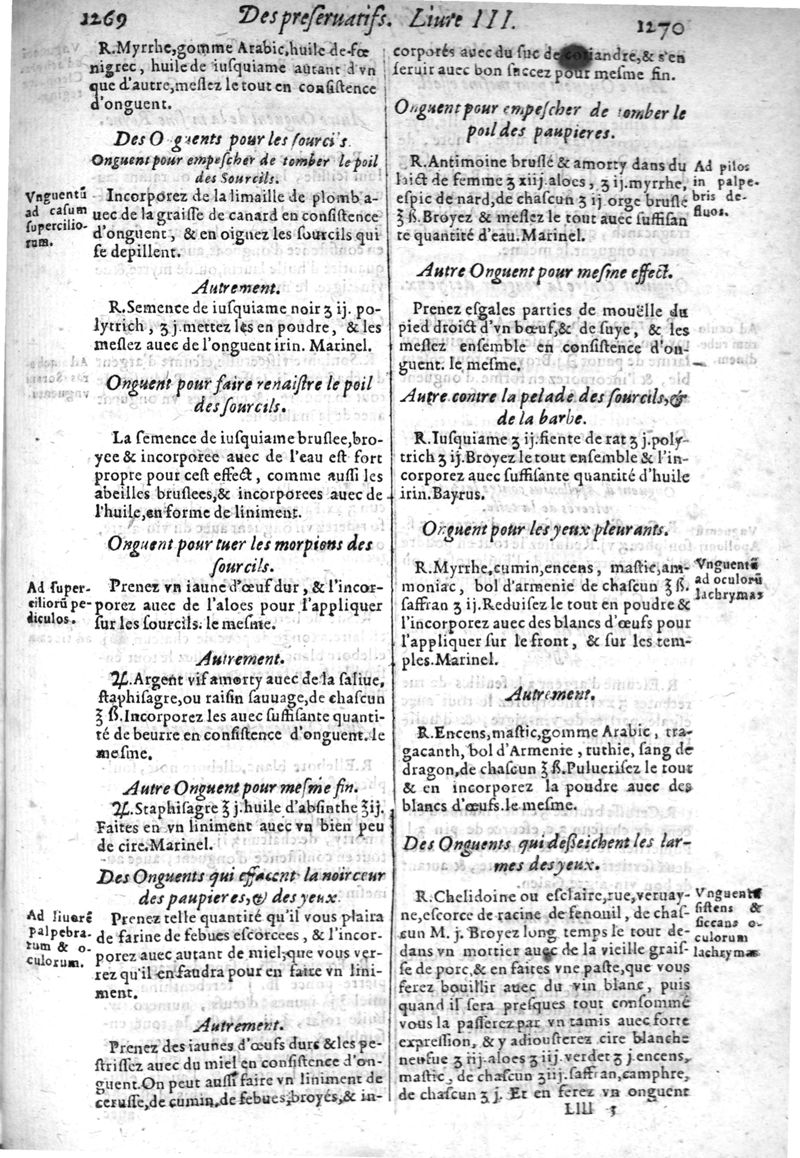 1269 Des preseruatifs. Liure III. 1270
R.Myrrhe,gomme Arabic,huile de-fœ
nigrec, huile de iusquiame autant d'vn
que d'autre,meslez le tout en consistence
d'onguent.
Des Onguents pour les sourcis
Onguent pour empescher de tomber le poil
des Sourcils.
Vnguentū
ad casum
supercilio-
rum.
Incorporez de la limaille de plomb a-
uec de la graisse de canard en consistence
d'onguent, & en oignez les sourcils qui
se depillent.
Autrement.
R.Semence de iusquiame noir ʒ ij. po-
lytrich, ʒ j.mettez les en poudre, & les
meslez auec de l'onguent irin. Marinel.
Onguent pour faire renaistre le poil
des sourcils.
La semence de iusquiame bruslee,bro-
yee & incorporee auec de l'eau est fort
propre pour cest effect, comme aussi les
abeilles bruslees,& incorporees auec de
l'huile,en forme de liniment.
Onguent pour tuer les morpions des
sourcils.
Ad super-
ciliorū pe-
diculos.
Prenez vn iaune d'œuf dur, & l'incor-
porez auec de l'aloes pour l'appliquer
sur les sourcils. le mesme.
Autrement.
♃.Argent vif amorty auec de la saliue,
staphisagre,ou raisin sauuage,de chascun
℥ ß.Incorporez les auec suffisante quanti-
té de beurre en consistence d'onguent. le
mesme.
Autre Onguent pour mesme fin.
♃.Staphisagre ℥ j.huile d'absinthe ℥ij.
Faites en vn liniment auec vn bien peu
de cire.Marinel.
Des Onguents qui effacent la noirceur
des paupieres,& des yeux.
Ad liuorē
palpebra-
rum & o-
culorum.
Prenez telle quantité qu'il vous plaira
de farine de febues escorcees, & l'incor-
porez auec autant de miel,que vous ver-
rez qu'il en faudra pour en faire vn lini-
ment.
Autrement.
Prenez des iaunes d'œufs durs & les pe-
strissez auec du miel en consistence d'on-
guent.On peut aussi faire vn liniment de
cerusse,de cumin,de febues,broyés,& in-
corporés auec du suc de coriandre,& s'en
seruir auec bon succez pour mesme fin.
Onguent pour empescher de tomber le
poil des paupieres.
R.Antimoine bruslé & amorty dans du
laict de femme ʒ xiij.aloes, ʒ ij.myrrhe,
espic de nard,de chascun ʒ ij orge bruslé
℥ ß.Broyez & meslez le tout auec suffisan
te quantité d'eau. Marinel.
Ad pilos
in palpe-
bris de-
fluos.
Autre Onguent pour mesme effect.
Prenez esgales parties de mouëlle du
pied droict d'vn bœuf,& de suye, & les
meslez ensemble en consistence d'on-
guent. le mesme.
Autre contre la pelade des sourcils,&
de la barbe.
R.Iusquiame ʒ ij.fiente de rat ʒ j.poly-
trich ʒ ij.Broyez le tout ensemble & l'in-
corporez auec suffisante quantité d'huile
irin.Bayrus.
Onguent pour les yeux pleurants.
R.Myrrhe,cumin,encens, mastic,am-
moniac, bol d'armenie de chascun ℥ ß.
saffran ʒ ij.Reduisez le tout en poudre &
l'incorporez auec des blancs d'œufs pour
l'appliquer sur le front, & sur les tem-
ples.Marinel.
Vnguentū
ad oculorū
lachrymas
Autrement.
R.Encens,mastic,gomme Arabic, tra-
gacanth,bol d'Armenie, tuthie, sang de
dragon,de chascun ℥ ß.Puluerisez le tout
& en incorporez la poudre auec des
blancs d'œufs. le mesme.
Des Onguents qui desseichent les lar-
mes des yeux.
R.Chelidoine ou esclaire,rue,veruay-
ne,escorce de racine de fenouil, de chas-
cun M. j. Broyez long temps le tout de-
dans vn mortier auec de la vieille grais-
se de porc,& en faites vne paste,que vous
ferez bouillir auec du vin blanc, puis
quand il sera presques tout consommé
vous la passerez par vn tamis auec forte
expression, & y adiousterez cire blanche
neufue ʒ iij.aloes ʒ iij.verdet ʒ j.encens,
mastic, de chascun ʒiij.saffran,camphre,
de chascun ʒ j. Et en ferez vn onguent
Vnguentū
sistens &
siccans o-
culorum
lachrymas
LIII 3